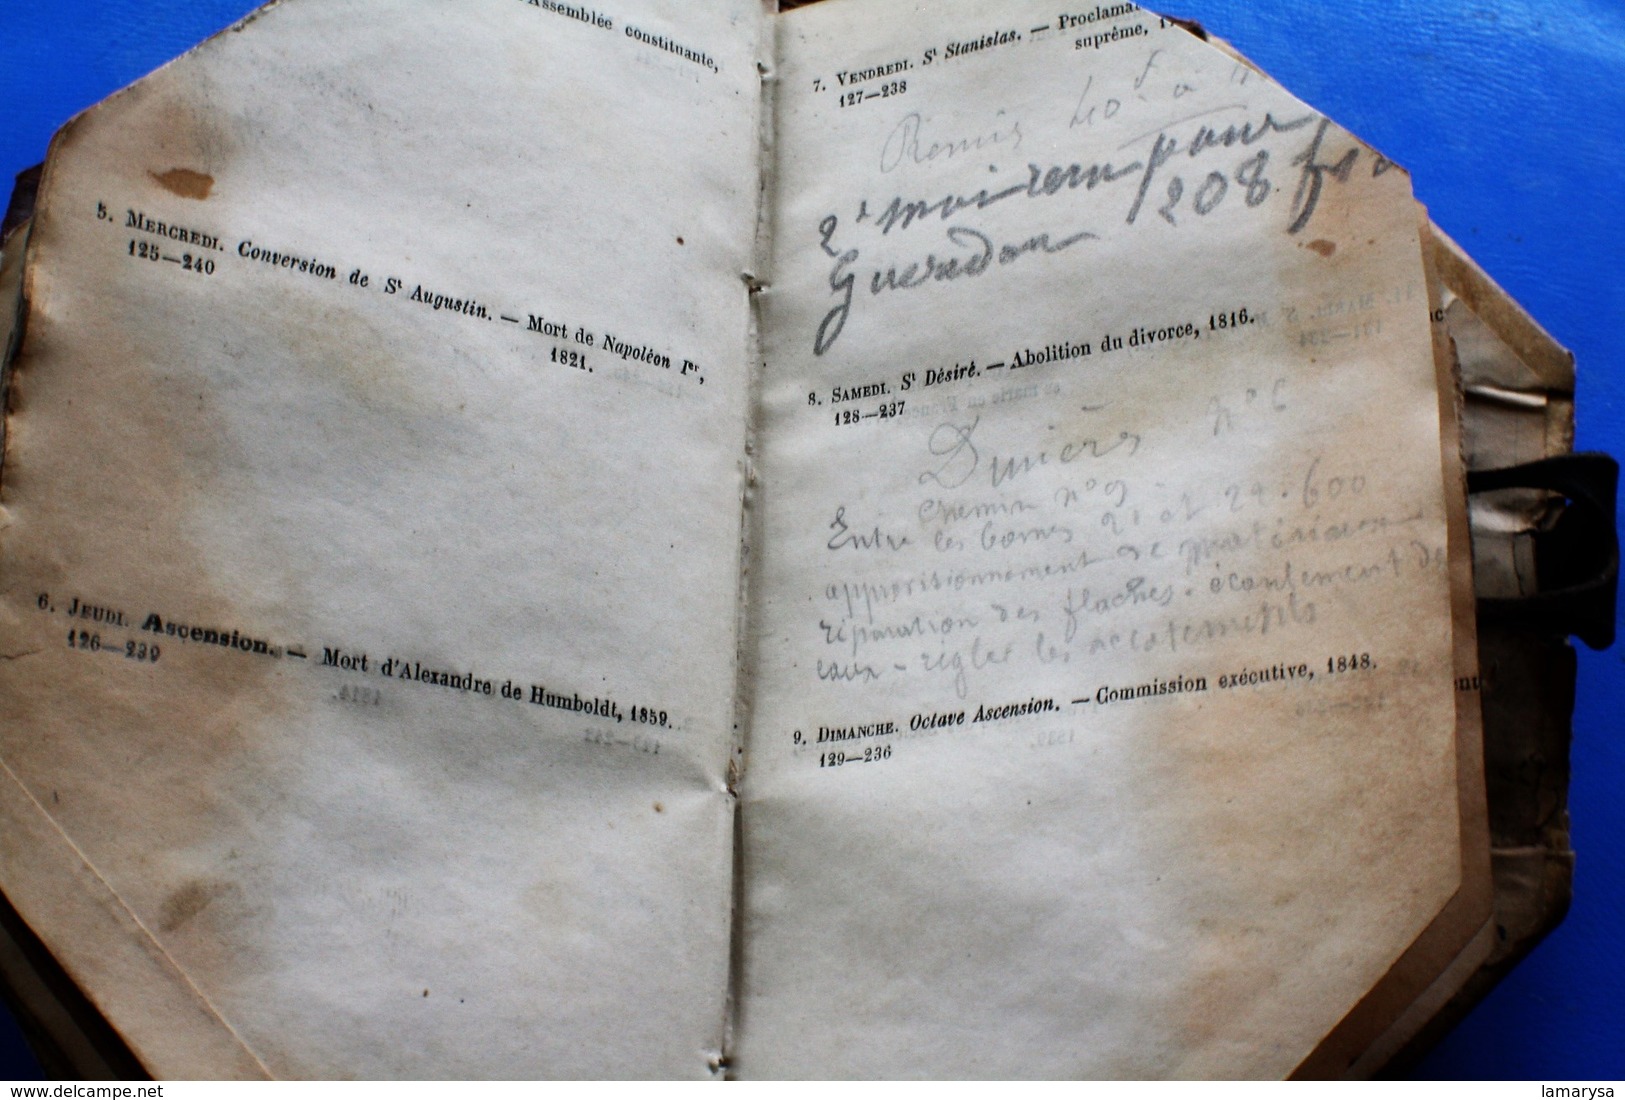 Assemblée constituante,
5. MERCREDI. Conversion de St Augustin. — Mort de Napoléon Ier,
125—240
1821.
6. JEUDI. Ascension. — Mort d'Alexandre de Humboldt, 1859.
126—239
7. VENDREDI. St Stanislas. — Proclama
suprême,
127—238
Remis 40 f. à
2d mai pour
Gueredon 208 f
8. SAMEDI. St Désiré. — Abolition du divorce, 1816.
128—237
Dunières N° 6
Chemin n° 9
Entre les bornes 21 et 22.600
approvisionnement de matériaux
réparation des flaches. écoulement de
eaux - régler les accotements
9. DIMANCHE. Octave Ascension. — Commission exécutive, 1848.
129—236
delcampe.net
lamarysa